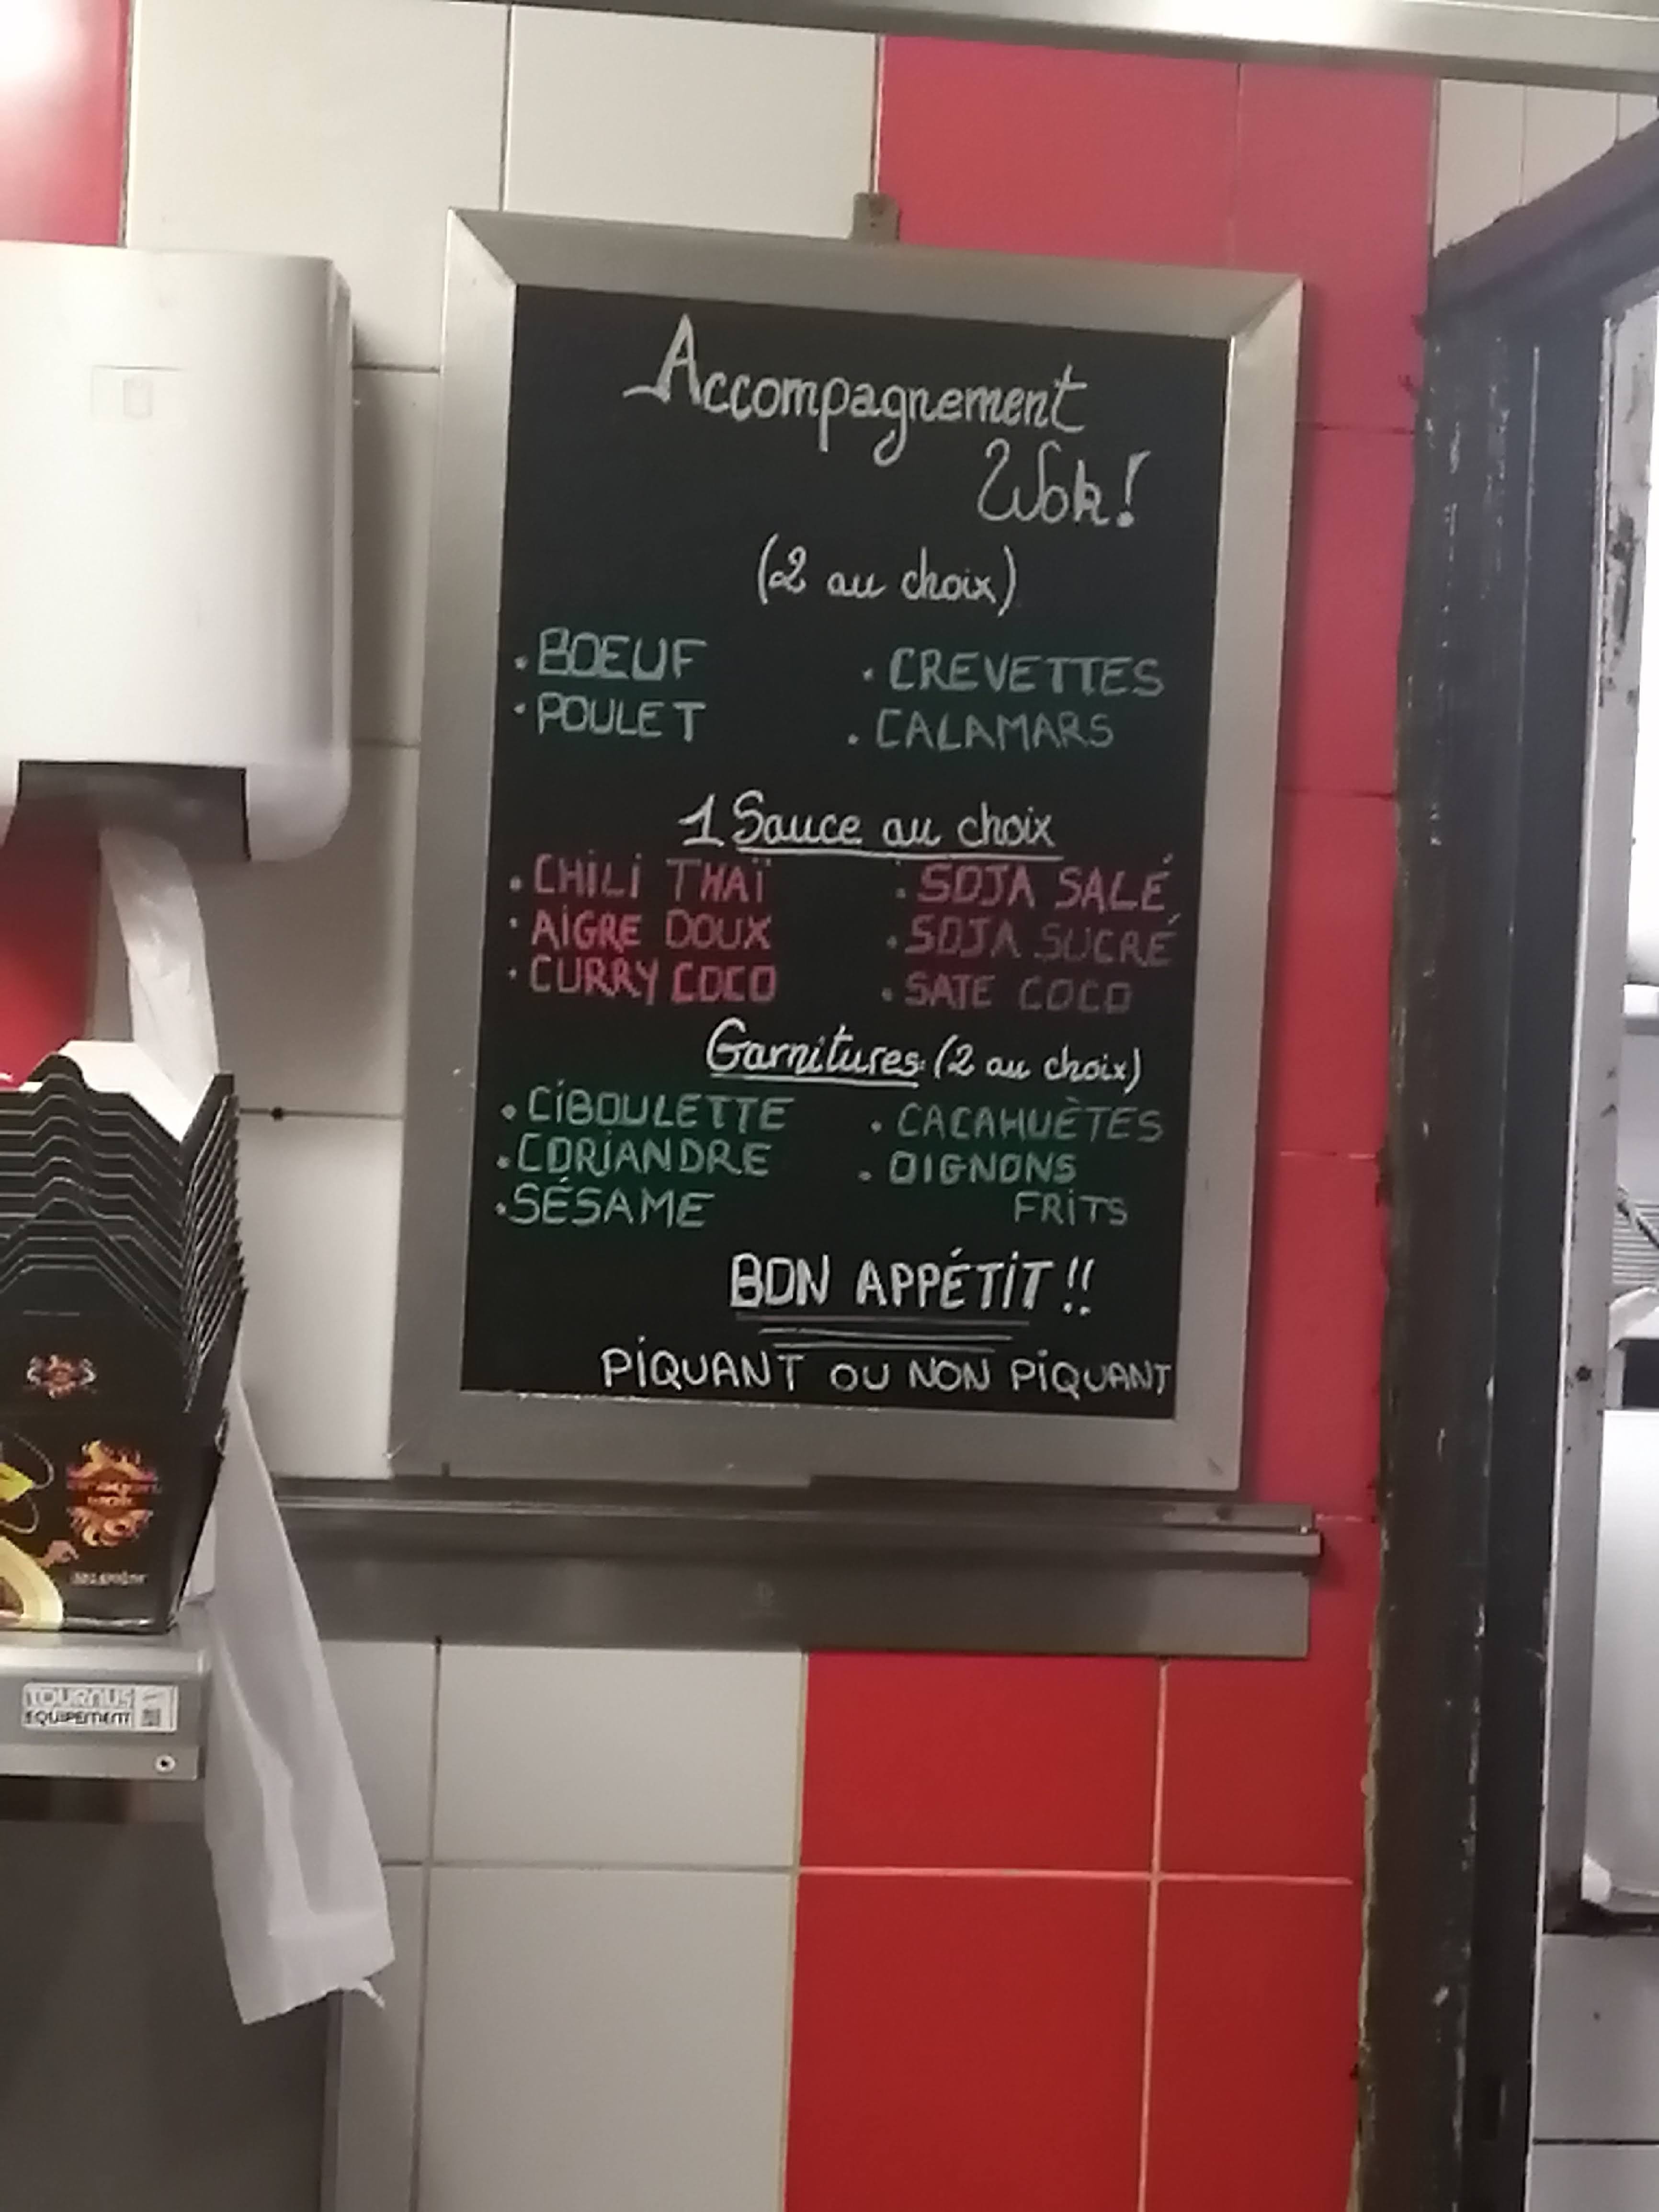 Accompagnement
Wok!
(2 au choix)
. BOEUF . CREVETTES
. POULET . CALAMARS
1 Sauce au choix
. CHILI THAÏ . SOJA SALÉ
. AIGRE DOUX . SOJA SUCRÉ
. CURRY COCO . SATE COCO
Garnitures: (2 au choix)
. CIBOULETTE . CACAHUÈTES
. CORIANDRE . OIGNONS
. SÉSAME FRITS
BON APPÉTIT !!
PIQUANT OU NON PIQUANT
TOURNUS
EQUIPEMENT